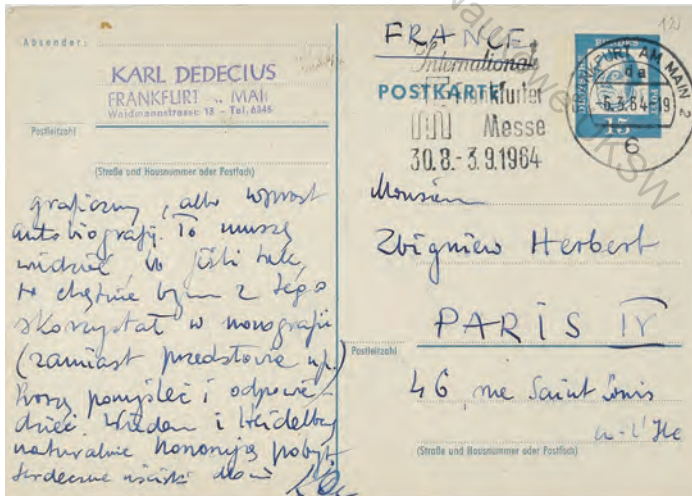 Absender:
KARL DEDECIUS
FRANKFURT .. MAI
Waidmannstrasse 13 - Tel. 6345
Postleitzahl
(Straße und Hausnummer oder Postfach)
graficzny, albo wprost
autobiografij. To muszę
wiedzieć, bo jeśli tak,
to chętnie bym z tego
skorzystał w monografii
(zamiast przedstowia np.)
Proszę pomyśleć i odpowie-
dzieć. Wiedeń i Heidelberg
naturalnie honorują pobyt.
Serdeczne uściski
FRANCE
Internationale
POSTKARTE
Frankfurter
Messe
30.8.-3.9.1964
FRANKFURT AM MAIN 2
da
-6.3.64-19
6
15
Monsieur
Zbigniew Herbert
PARIS IV
Postleitzahl
46, rue Saint Louis
en-l'Ile
(Straße und Hausnummer oder Postfach)